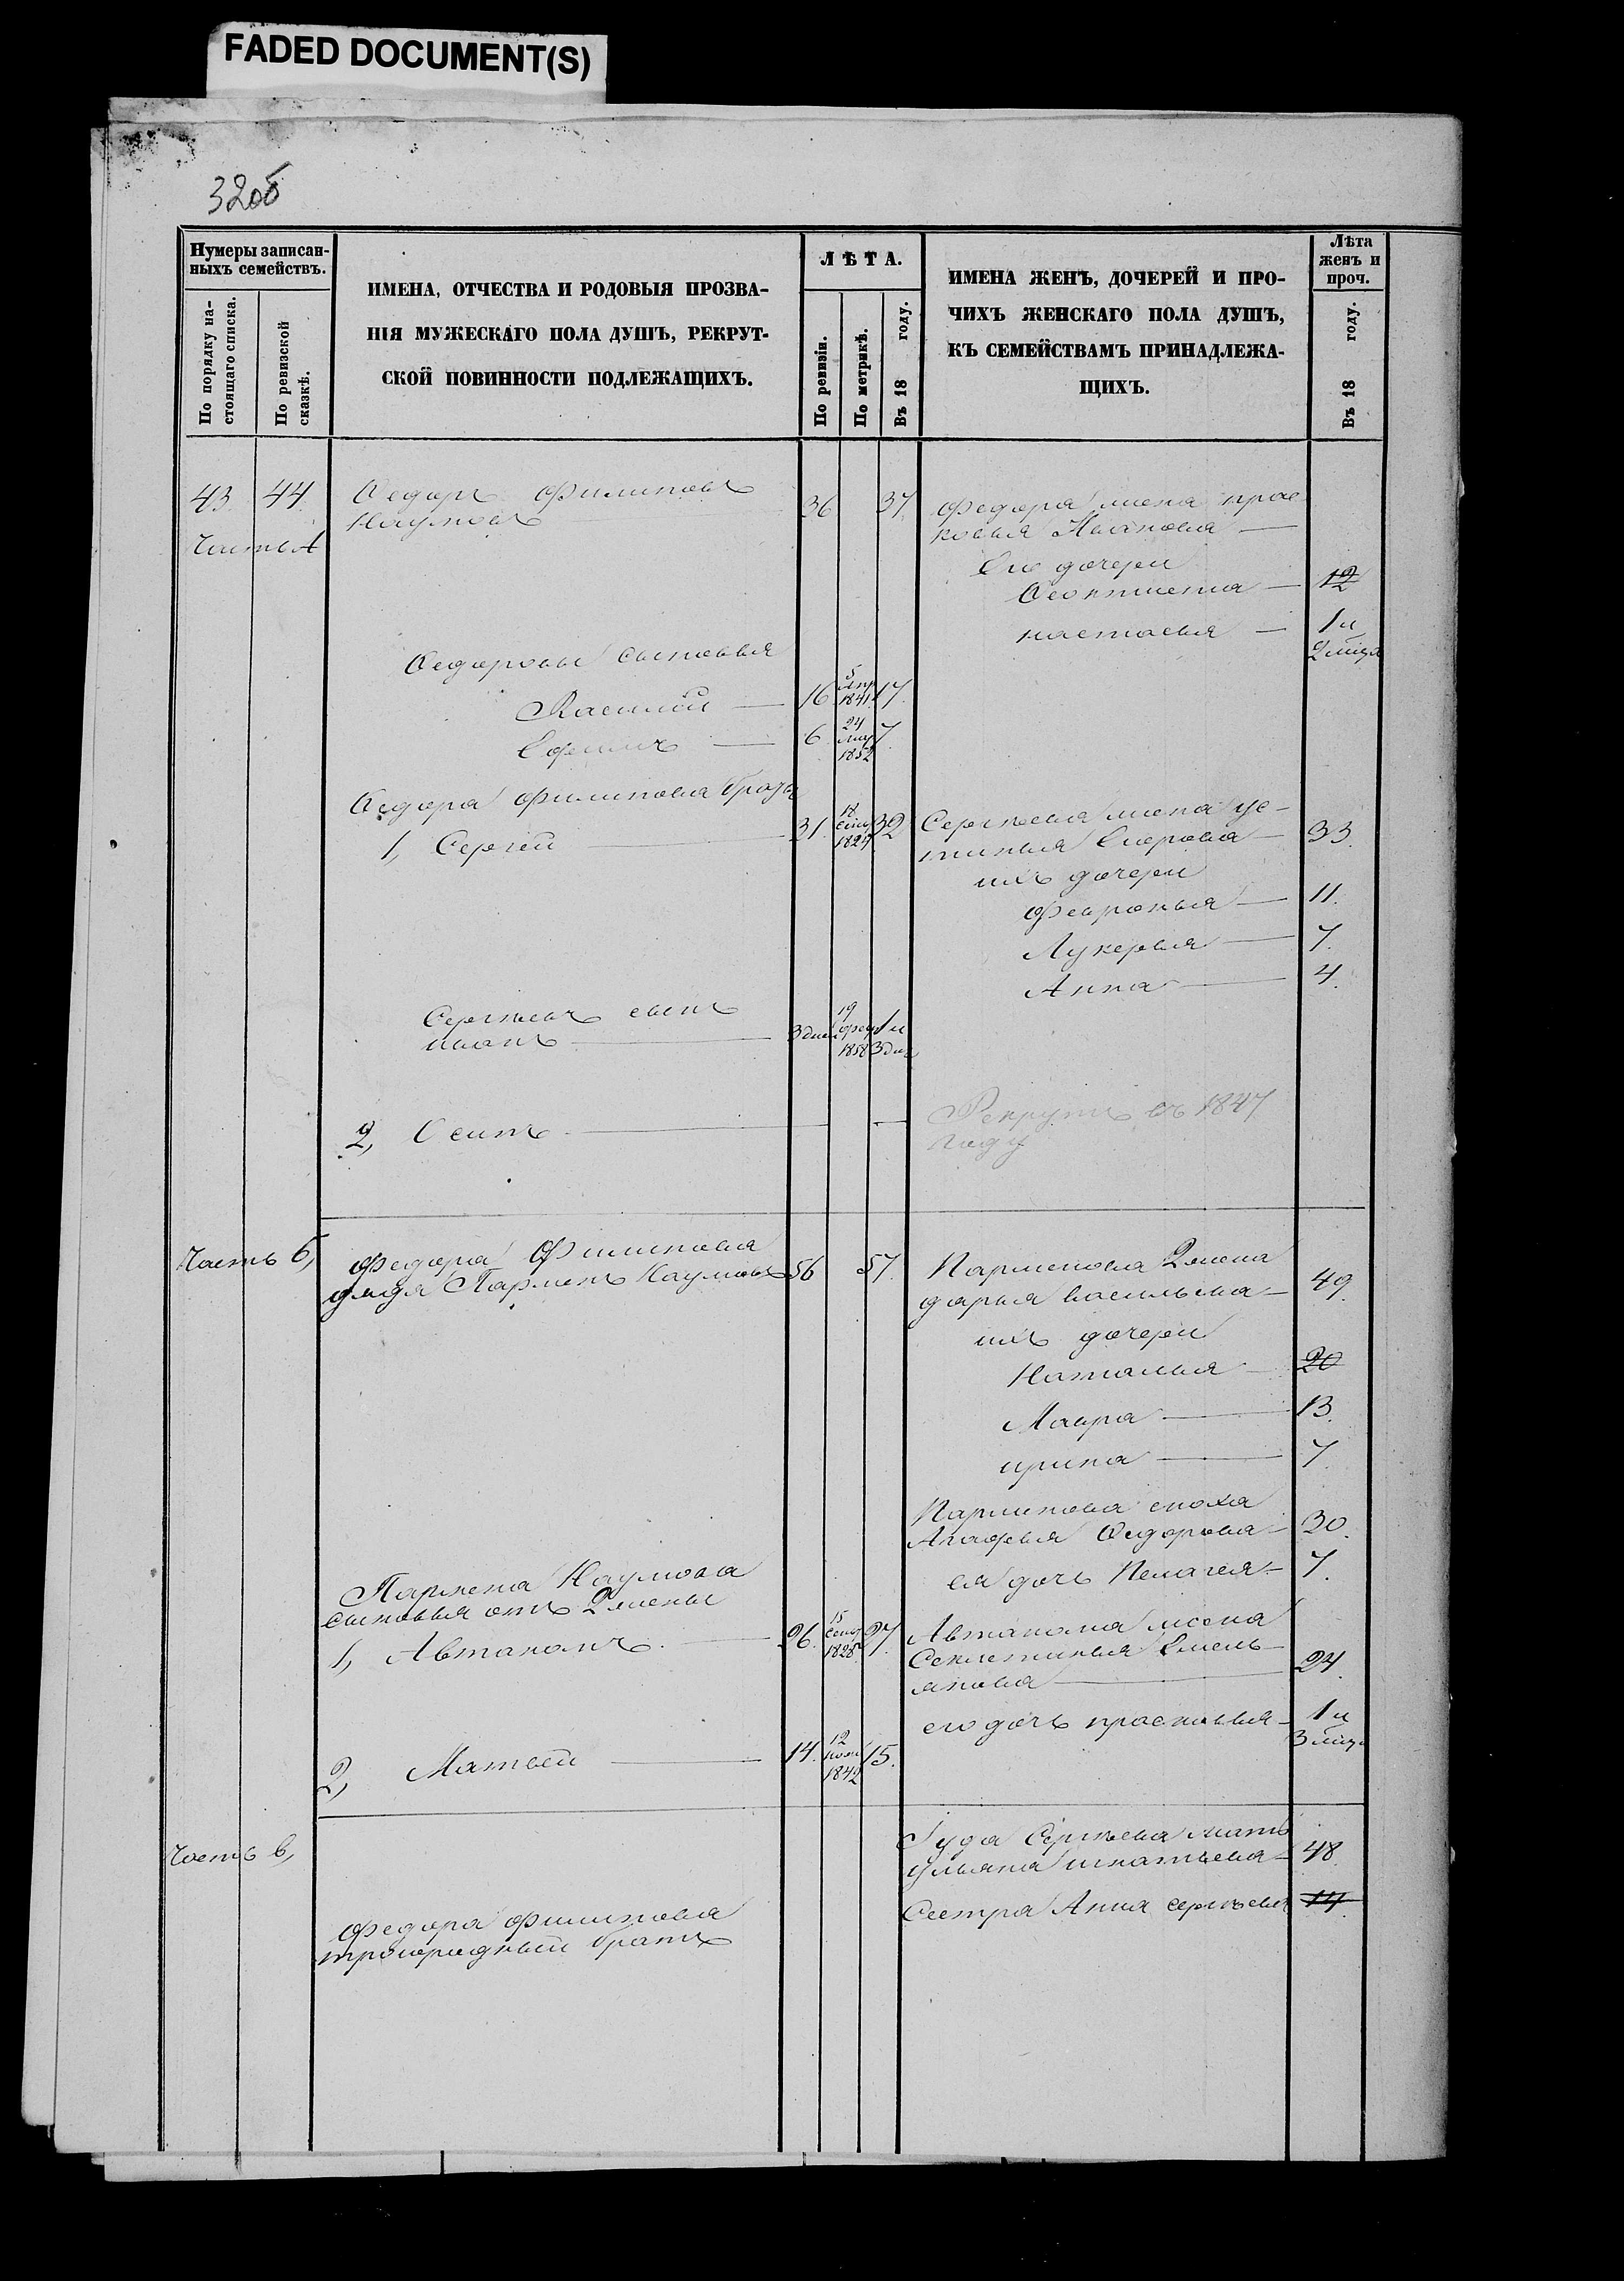 FADED DOCUMENT(S)
32об
Нумеры записан-
ныхъ семействъ.
По порядку на-
стоящаго списка.
По ревизской
сказкѣ.
ИМЕНА, ОТЧЕСТВА И РОДОВЫЯ ПРОЗВА-
НІЯ МУЖЕСКАГО ПОЛА ДУШЪ, РЕКРУТ-
СКОЙ ПОВИННОСТИ ПОДЛЕЖАЩИХЪ.
ЛѢТА.
По ревизіи.
По метрикѣ.
Въ 18 году.
ИМЕНА ЖЕНЪ, ДОЧЕРЕЙ И ПРО-
ЧИХЪ ЖЕНСКАГО ПОЛА ДУШЪ,
КЪ СЕМЕЙСТВАМЪ ПРИНАДЛЕЖА-
ЩИХЪ.
Лѣта
женъ и
проч.
Въ 18 году.
43 44 Ѳедоръ Филиповъ 36 37 Федора жена прас
Наумовъ ковья Иванова —
Часть А
Его дочери
Ѳеоктиста — 12
настасья — 1 и
2 мѣця
Ѳедоровы сыновья
Василий — 16 5 Апр 1841 17
Ефимъ — 6 24 Мар 1852 7
Ѳедора Филипова братья
1, Сергей — 31. 18 Сен 1829 32 Сергѣева жена ус-
тинья Егорова — 33.
ихъ дочери
Февронья — 11.
Лукерья — 7.
Анна — 4.
Сергѣевъ сынъ
иванъ — 3 дней 19 фев 1858 1 и 3 дня
2, Осипъ — — Рекрутъ въ 1847
году
Часть б, Федора Филипова
дядя Парменъ Наумовъ 56 57. Парменова 2 жена
дарья васильева — 49.
ихъ дочери
Наталья — 20
Мавра — 13.
ирина — 7
Парминова сноха
Агафья Ѳедорова — 30.
ея дочь Пелагея — 7.
Пармена Наумова
сыновья отъ 2 жены
1, Автаномъ. — 26. 15 Сен 1828 27. Автанома жена
Секлетинья Емель-
янова — 24.
его дочь прасковья — 1 и
3 мѣця
2, Матвей — 14. 12 ноя 1842 15.
Часть в,
Гуда Сергѣева мать
ульяна игнатьева — 48.
Сестра Анна сергѣева 14.
Федора филипова
троюродный братъ